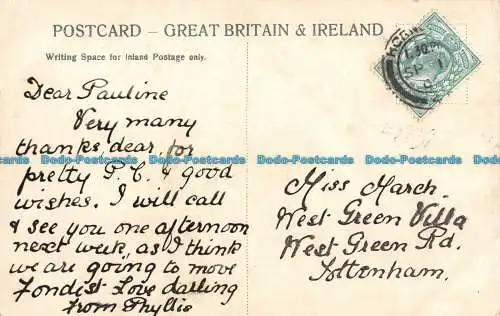 POSTCARD – GREAT BRITAIN & IRELAND
Writing Space for Inland Postage only.
Dear Pauline
Very many
thanks, dear, for
pretty P.C. & good
wishes. I will call
& see you one afternoon
next week, as I think
we are going to move
Fondist Love darling
from Phyllis
Miss March
West Green Villa
West Green Rd.
Tottenham.
Dodo-Postcards Dodo-Postcards Dodo-Postcards Dodo-Postcards